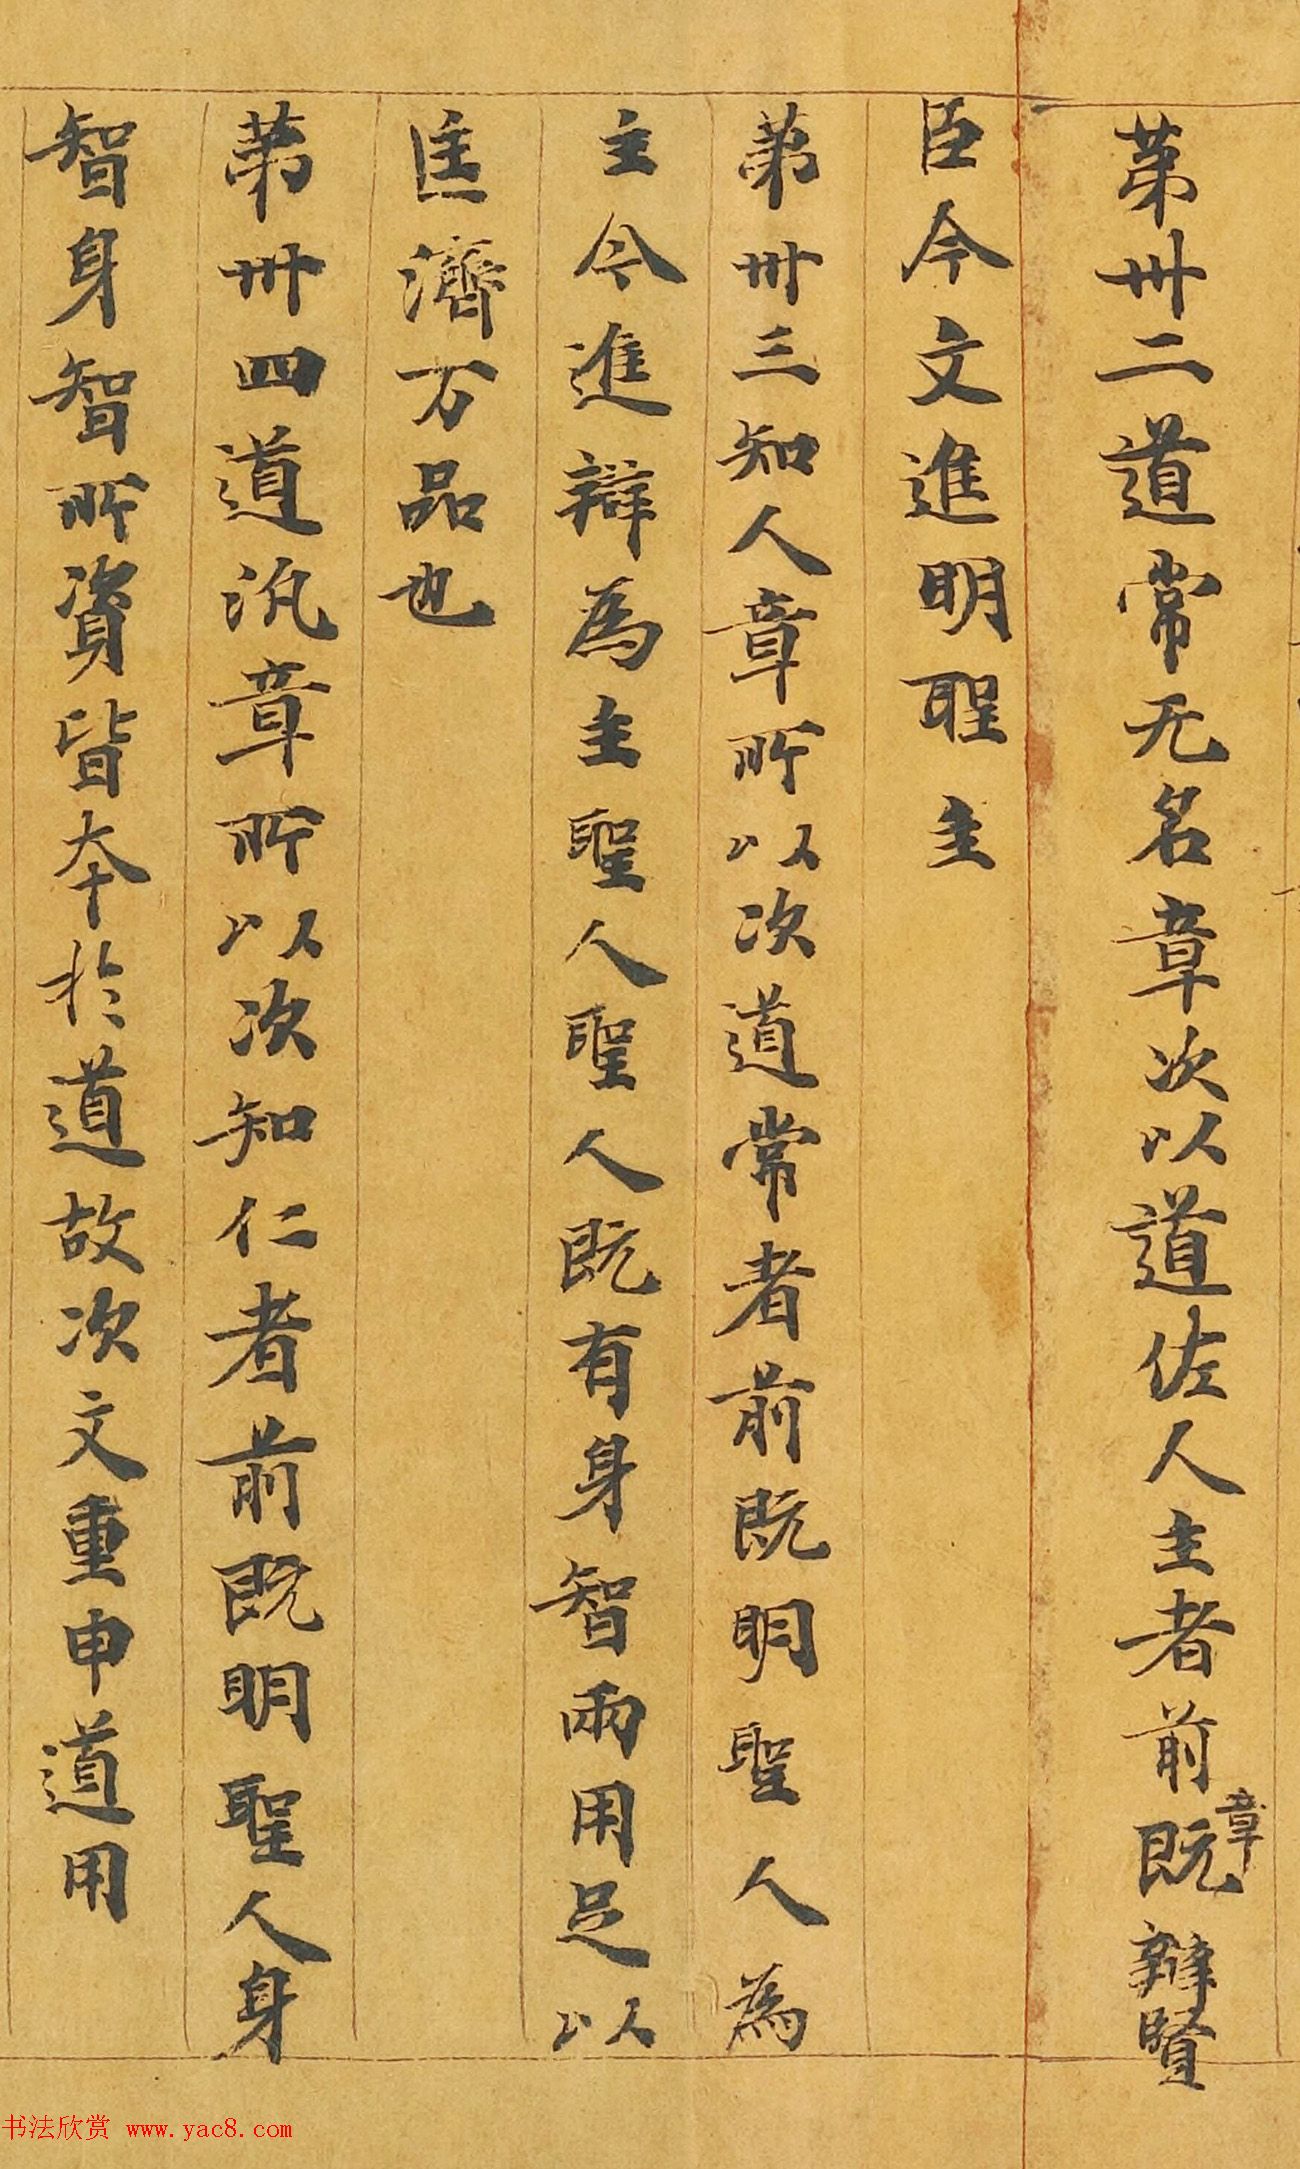 第卅二道常无名章次以道佐人主者前章既辯賢
臣今文進明聖主
第卅三知人章所以次道常者前既明聖人為
主今進辯為主聖人聖人既有身智兩用足以
匡濟万品也
第卅四道汎章所以次知仁者前既明聖人身
智身智所資皆本於道故次文重申道用
书法欣赏 www.yac8.com